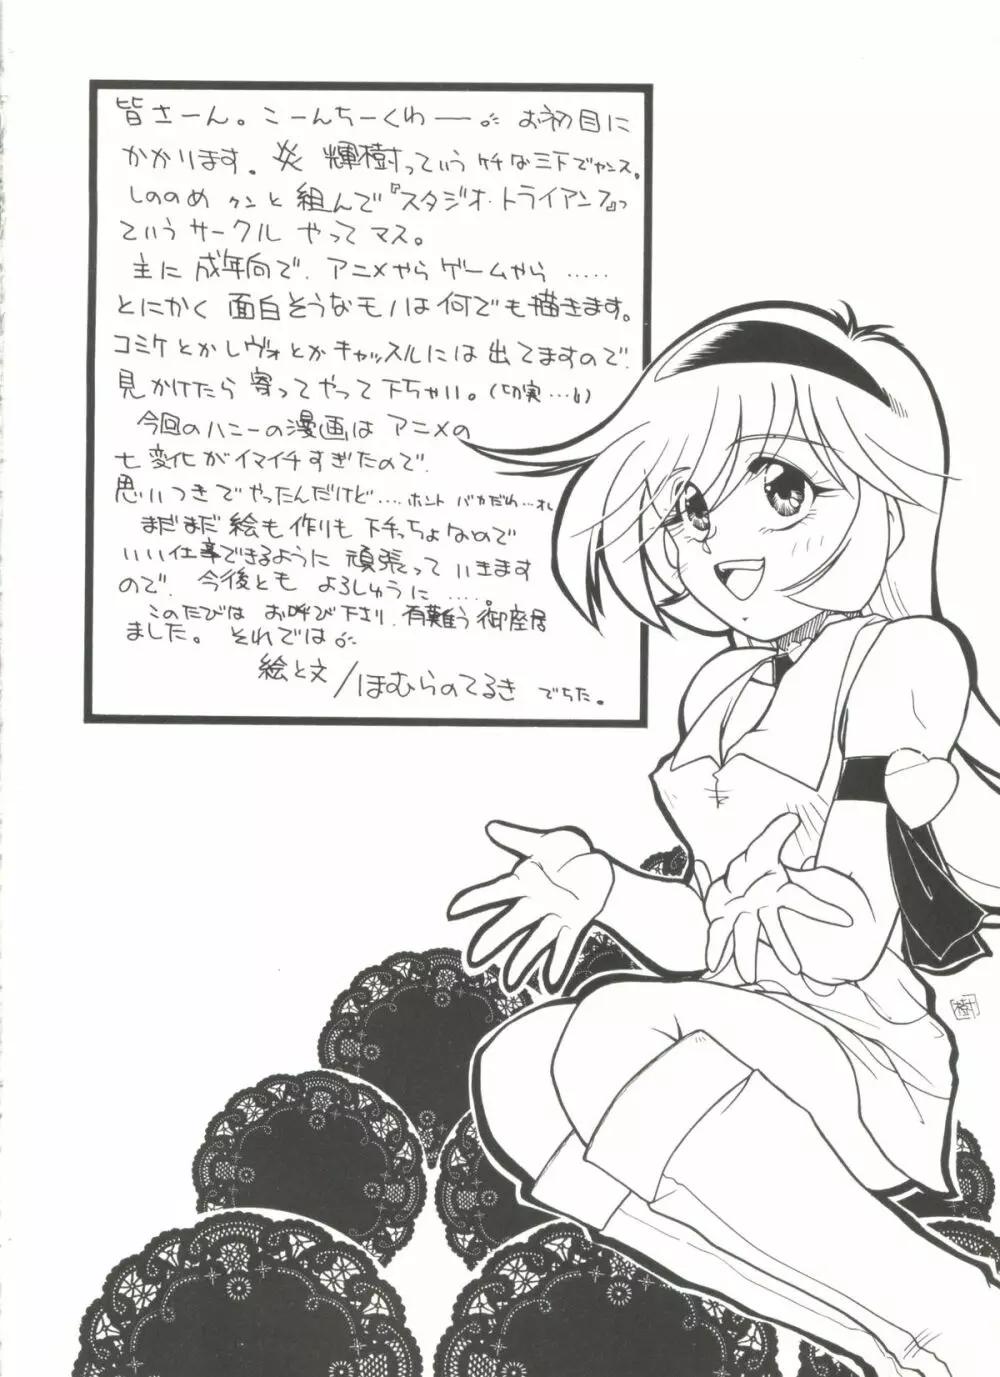 皆さーん。こーんちーくわー。お初目に
かかります。炎 輝樹っていうケチな三下でヤンス。
しののめ クンと組んで『スタジオ・トライアングル』っ
ていうサークル やってマス。
主に成年向で、アニメやらゲームやら……
とにかく面白そうなモノは何でも描きます。
コミケとかレヴォとかキャッスルには出てますので、
見かけたら寄ってやって下ちゃい。(切実…)
今回のハニーの漫画はアニメの
七変化がイマイチすぎたので、
思いつきでやったんだけど…．ホント バカだわ…オレ
まだまだ絵も作りも下手っちょなので
いい仕事できるように頑張っていきます
ので、今後とも よろしゅうに……。
このたびは お呼び下さり、有難う御座居
ました。それでは
絵と文/ほむらのてるき でちた。
樹